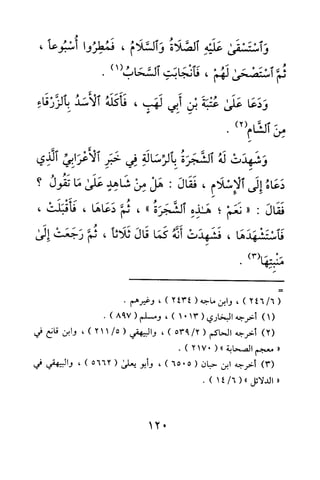 وَٱسْتَسْقَىٰ عَلَيْهِ ٱلصَّلَاةُ وَٱلسَّلَامُ ، فَمُطِرُوا أُسْبُوعاً ،
ثُمَّ ٱسْتَصْحَىٰ لَهُمْ ، فَٱنْجَابَتِ ٱلسَّحَابُ(١) .
وَدَعَا عَلَىٰ عُتْبَةَ بْنِ أَبِي لَهَبٍ ، فَأَكَلَهُ ٱلأَسَدُ بِٱلزَّرْقَاءِ
مِنَ ٱلشَّامِ(٢) .
وَشَهِدَتْ لَهُ ٱلشَّجَرَةُ بِٱلرِّسَالَةِ فِي خَبَرِ ٱلأَعْرَابِيِّ ٱلَّذِي
دَعَاهُ إِلَى ٱلإِسْلَامِ ، فَقَالَ : هَلْ مِنْ شَاهِدٍ عَلَىٰ مَا تَقُولُ ؟
فَقَالَ : « نَعَمْ ؛ هَـٰذِهِ ٱلشَّجَرَةُ » ، ثُمَّ دَعَاهَا ، فَأَقْبَلَتْ ،
فَٱسْتَشْهَدَهَا ، فَشَهِدَتْ أَنَّهُ كَمَا قَالَ ثَلَاثاً ، ثُمَّ رَجَعَتْ إِلَىٰ
مَنْبِتِهَا(٣) .
=
( ٢٤٦/٦ ) ، وابن ماجه ( ٢٤٣٤ ) ، وغيرهم .
(١) أخرجه البخاري ( ١٠١٣ ) ، ومسلم ( ٨٩٧ ) .
(٢) أخرجه الحاكم ( ٥٣٩/٢ ) ، والبيهقي ( ٢١١/٥ ) ، وابن قانع في
« معجم الصحابة » ( ٢١٧٠ ) .
(٣) أخرجه ابن حبان ( ٦٥٠٥ ) ، وأبو يعلىٰ ( ٥٦٦٢ ) ، والبيهقي في
« الدلائل » ( ١٤/٦ ) .
١٢٠